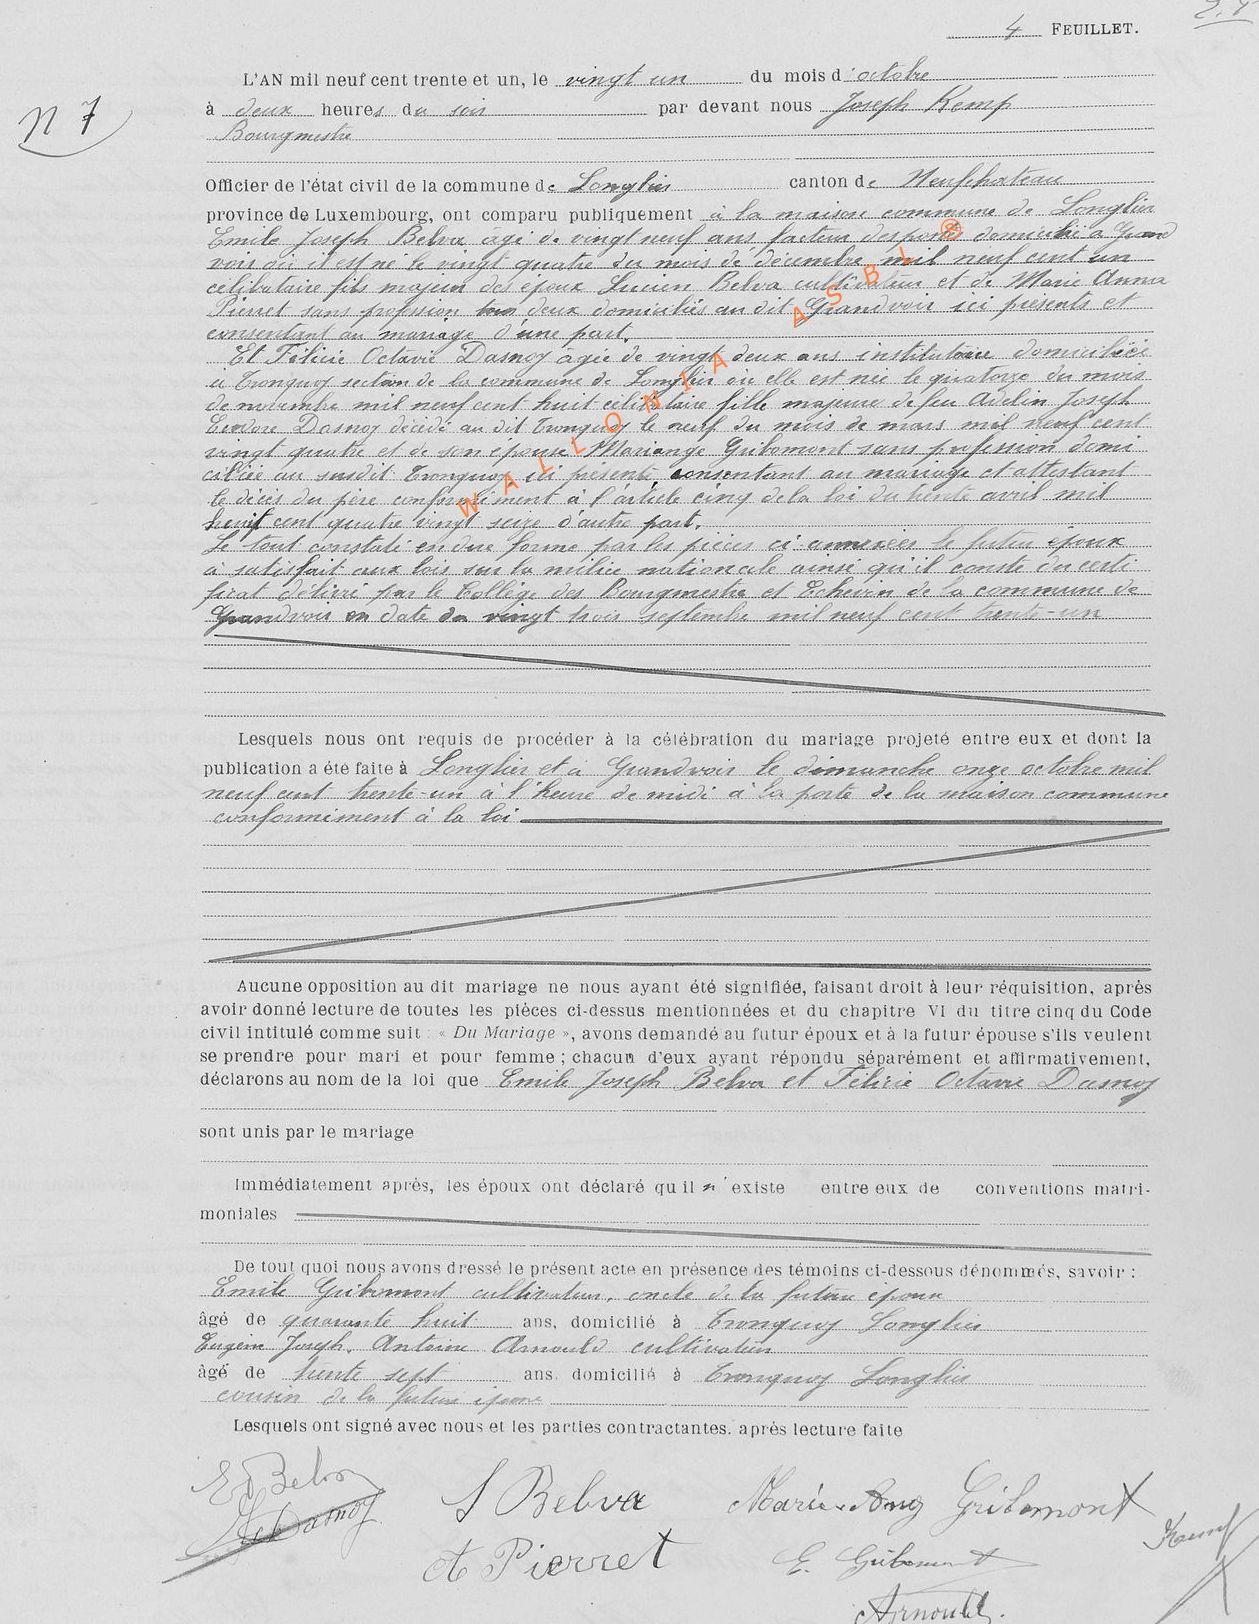 4 FEUILLET.
L'AN mil neuf cent trente et un, le vingt un du mois d'octobre
N 7
à deux heures du soir par devant nous Joseph Kemp
Bourgmestre
Officier de l'état civil de la commune de Longlier canton de Neufchateau
province de Luxembourg, ont comparu publiquement à la maison commune de Longlier
Emile Joseph Belva âgé de vingt neuf ans facteur des postes domicilié à Grand
voir où il est né le vingt quatre du mois de décembre mil neuf cent un
célibataire fils majeur des époux Lucien Belva cultivateur et de Marie Anna
Pierret sans profession tous deux domiciliés au dit Grandvoir ici présents et
consentant au mariage d'une part.
Et Félicie Octavie Dasnoy agée de vingt deux ans institutrice domiciliée
à Tronquoy section de la commune de Longlier où elle est née le quatorze du mois
de novembre mil neuf cent huit célibataire fille majeure de feu Adelin Joseph
Dasnoy décédé au dit Tronquoy le neuf du mois de mars mil neuf cent
vingt quatre et de son épouse Mariange Gribomont sans profession domi
ciliée au susdit Tronquoy ici présente consentant au mariage et attestant
le décès du père conformément à l'article cinq de la loi du trente avril mil
huit cent quatre vingt seize d'autre part.
Le tout constaté en due forme par les pièces ci-annexées le futur époux
a satisfait aux lois sur la milice nationale ainsi qu'il conste du certi
ficat délivré par le Collège des Bourgmestre et Echevin de la commune de
Grandvoir en date du vingt trois septembre mil neuf cent trente-un
WALLONIA ASBL ®
Lesquels nous ont requis de procéder à la célébration du mariage projeté entre eux et dont la
publication a été faite à Longlier et à Grandvoir le dimanche onze octobre mil
neuf cent trente-un à l'heure de midi à la porte de la maison commune
conformément à la loi
Aucune opposition au dit mariage ne nous ayant été signifiée, faisant droit à leur réquisition, après
avoir donné lecture de toutes les pièces ci-dessus mentionnées et du chapitre VI du titre cinq du Code
civil intitulé comme suit : « Du Mariage », avons demandé au futur époux et à la future épouse s'ils veulent
se prendre pour mari et pour femme ; chacun d'eux ayant répondu séparément et affirmativement,
déclarons au nom de la loi que Emile Joseph Belva et Félicie Octavie Dasnoy
sont unis par le mariage
Immédiatement après, les époux ont déclaré qu'il n'existe entre eux de conventions matri-
moniales
De tout quoi nous avons dressé le présent acte en présence des témoins ci-dessous dénommés, savoir :
Emile Gribomont cultivateur, oncle de la future épouse
âgé de quarante huit ans, domicilié à Tronquoy Longlier
Eugène Joseph, Antoine Arnould cultivateur
âgé de trente sept ans, domicilié à Tronquoy Longlier
cousin de la future épouse
Lesquels ont signé avec nous et les parties contractantes, après lecture faite
E Belva
L Belva
Marie-Ang Gribomont
Dasnoy
Kemp
A Pierret
E. Gribomont
Arnould.